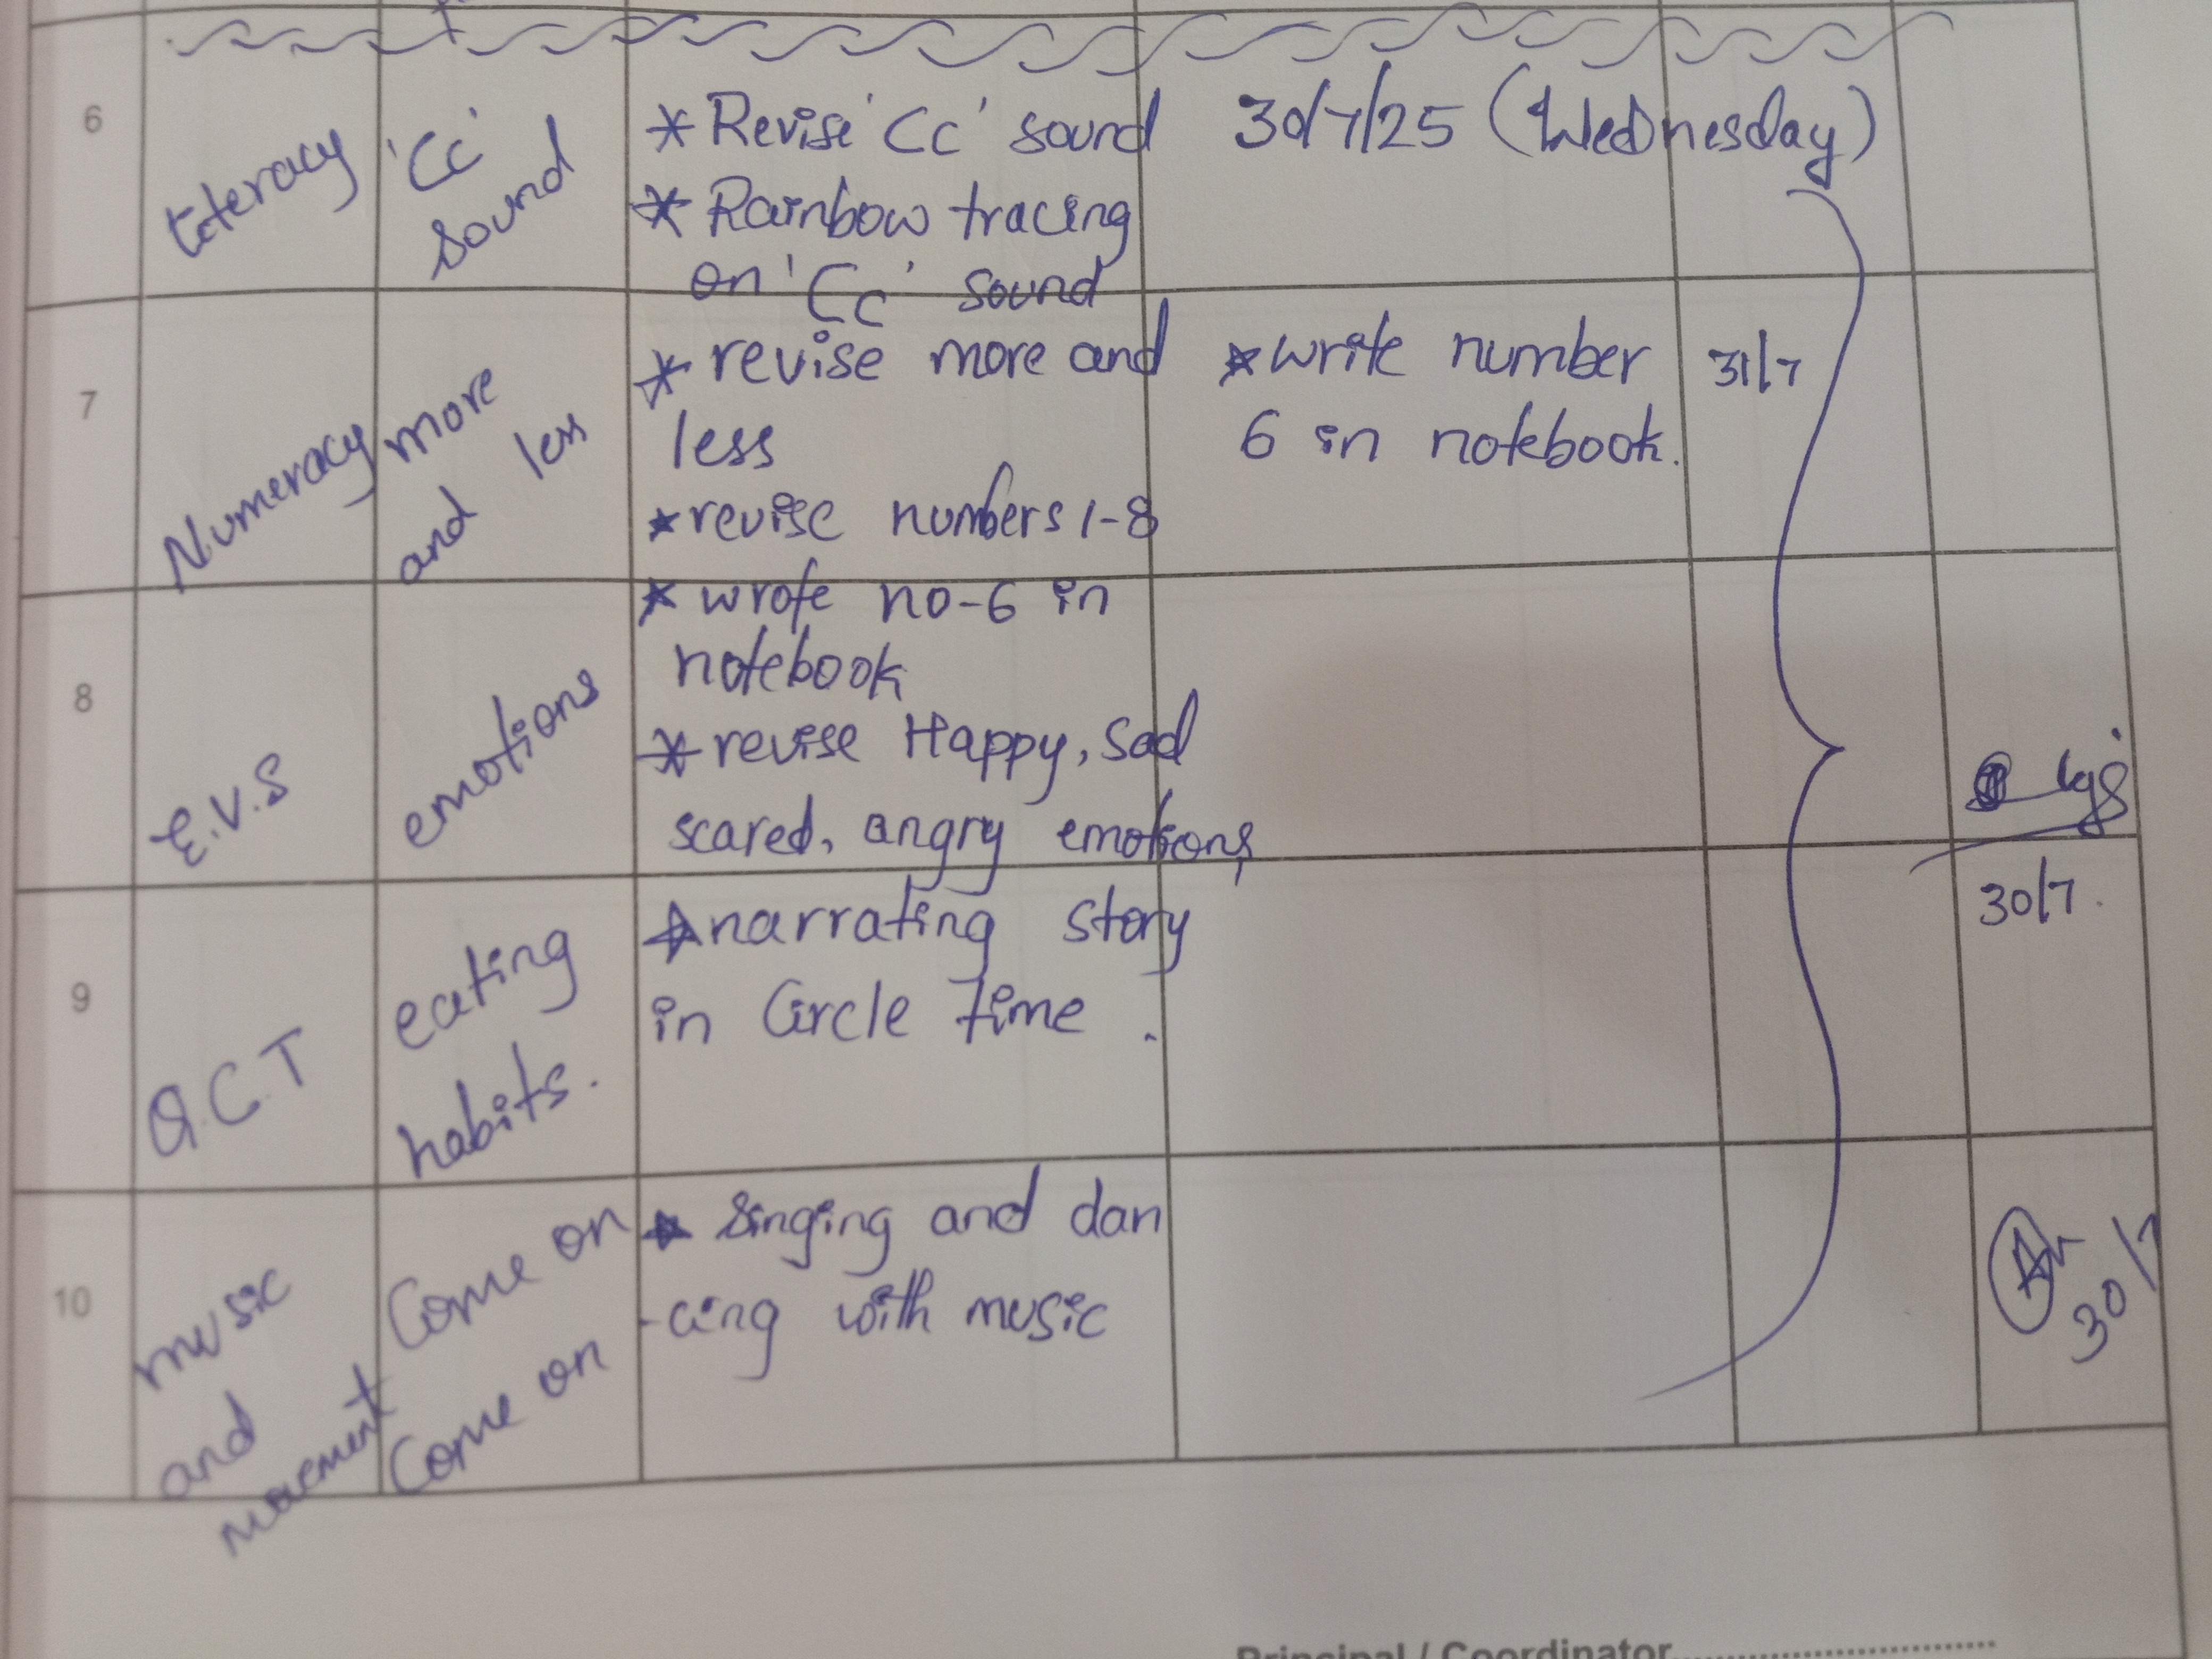 6
Literacy
'Cc'
Sound
* Revise 'Cc' sound
* Rainbow tracing
on 'Cc' sound
30/7/25 (Wednesday)
7
Numeracy
more
and less
* revise more and
less
* revise numbers 1-8
* wrote no-6 in
notebook
* write number
6 in notebook.
31/7
8
E.V.S
emotions
* revise Happy, Sad
scared, angry emotions
30/7.
9
Q.C.T
eating
habits.
* narrating story
in Circle Time .
10
music
and
movement
Come on
Come on
* Singing and dan
-cing with music
30/7
Principal / Coordinator